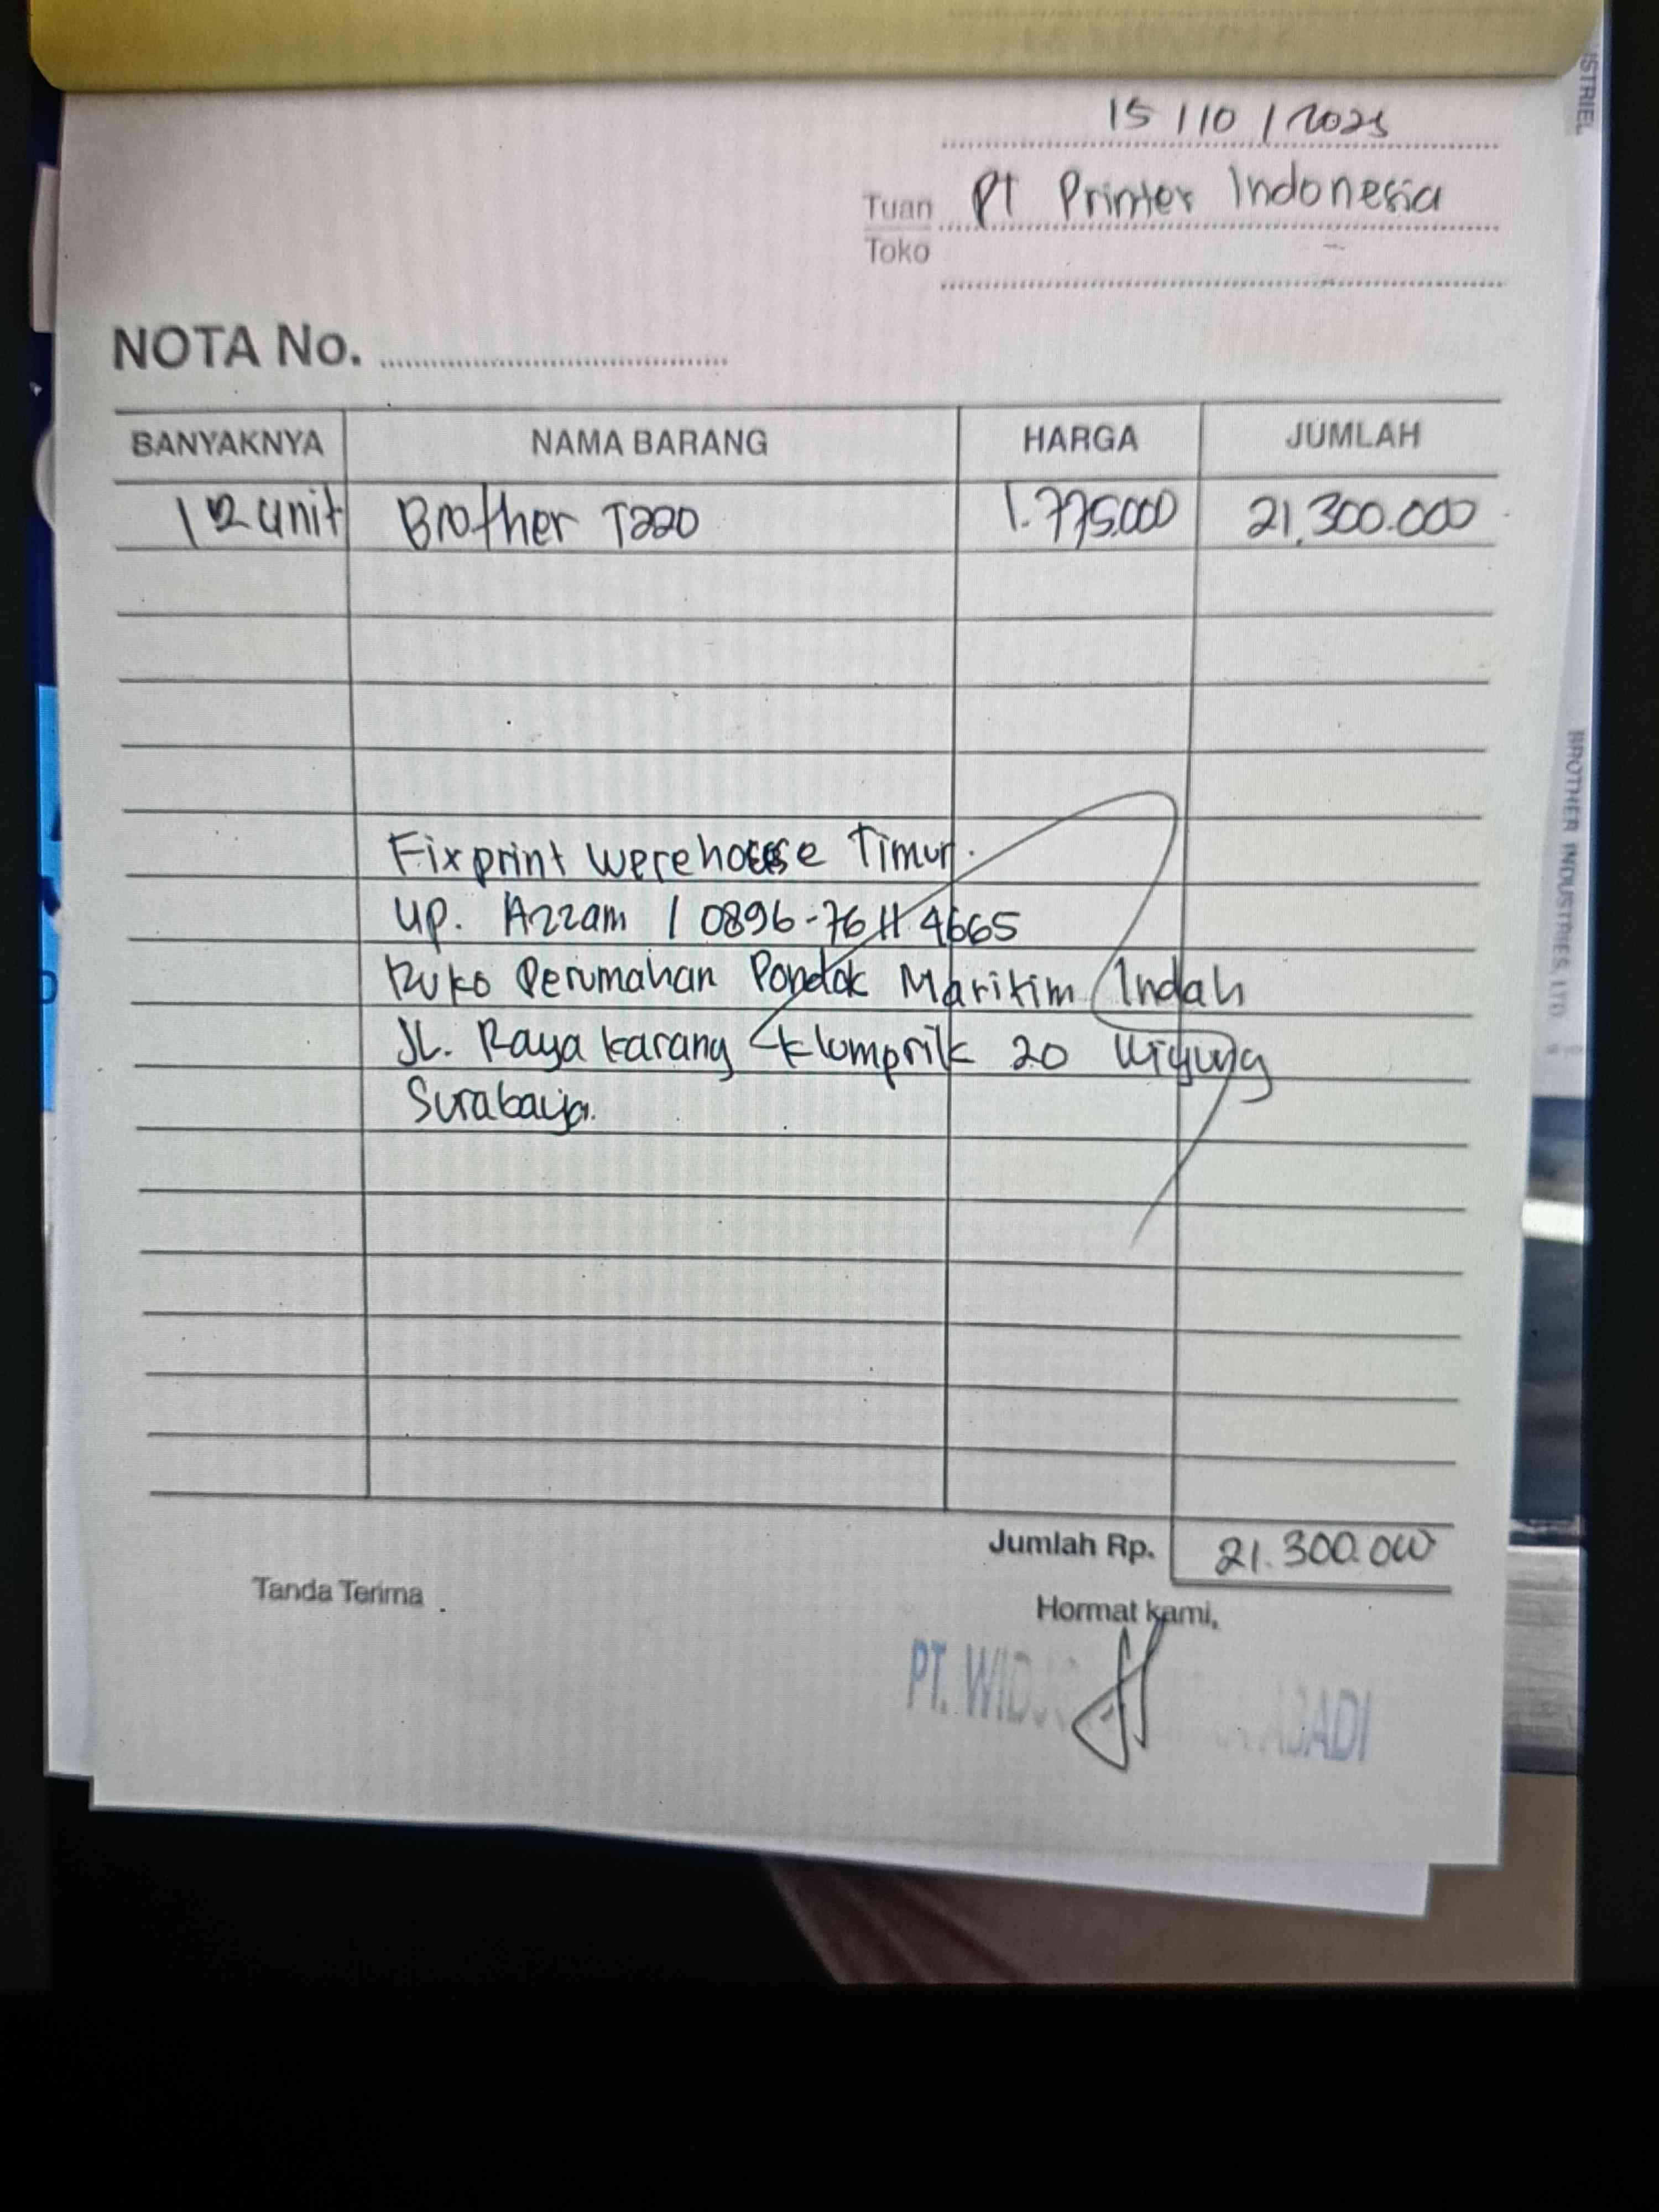 15/10/2025
Tuan PT Printer Indonesia
Toko
NOTA No.
BANYAKNYA NAMA BARANG HARGA JUMLAH
12 unit Brother T220 1.775.000 21.300.000
Fixprint werehouse Timur.
UP. Azzam / 0896-7611-4665
Ruko Perumahan Pondok Maritim Indah
JL. Raya karang klumprik 20 Wiyung
Surabaya.
Jumlah Rp. 21.300.000
Tanda Terima
Hormat kami,
PT. ABADI
BROTHER INDUSTRIES, LTD.